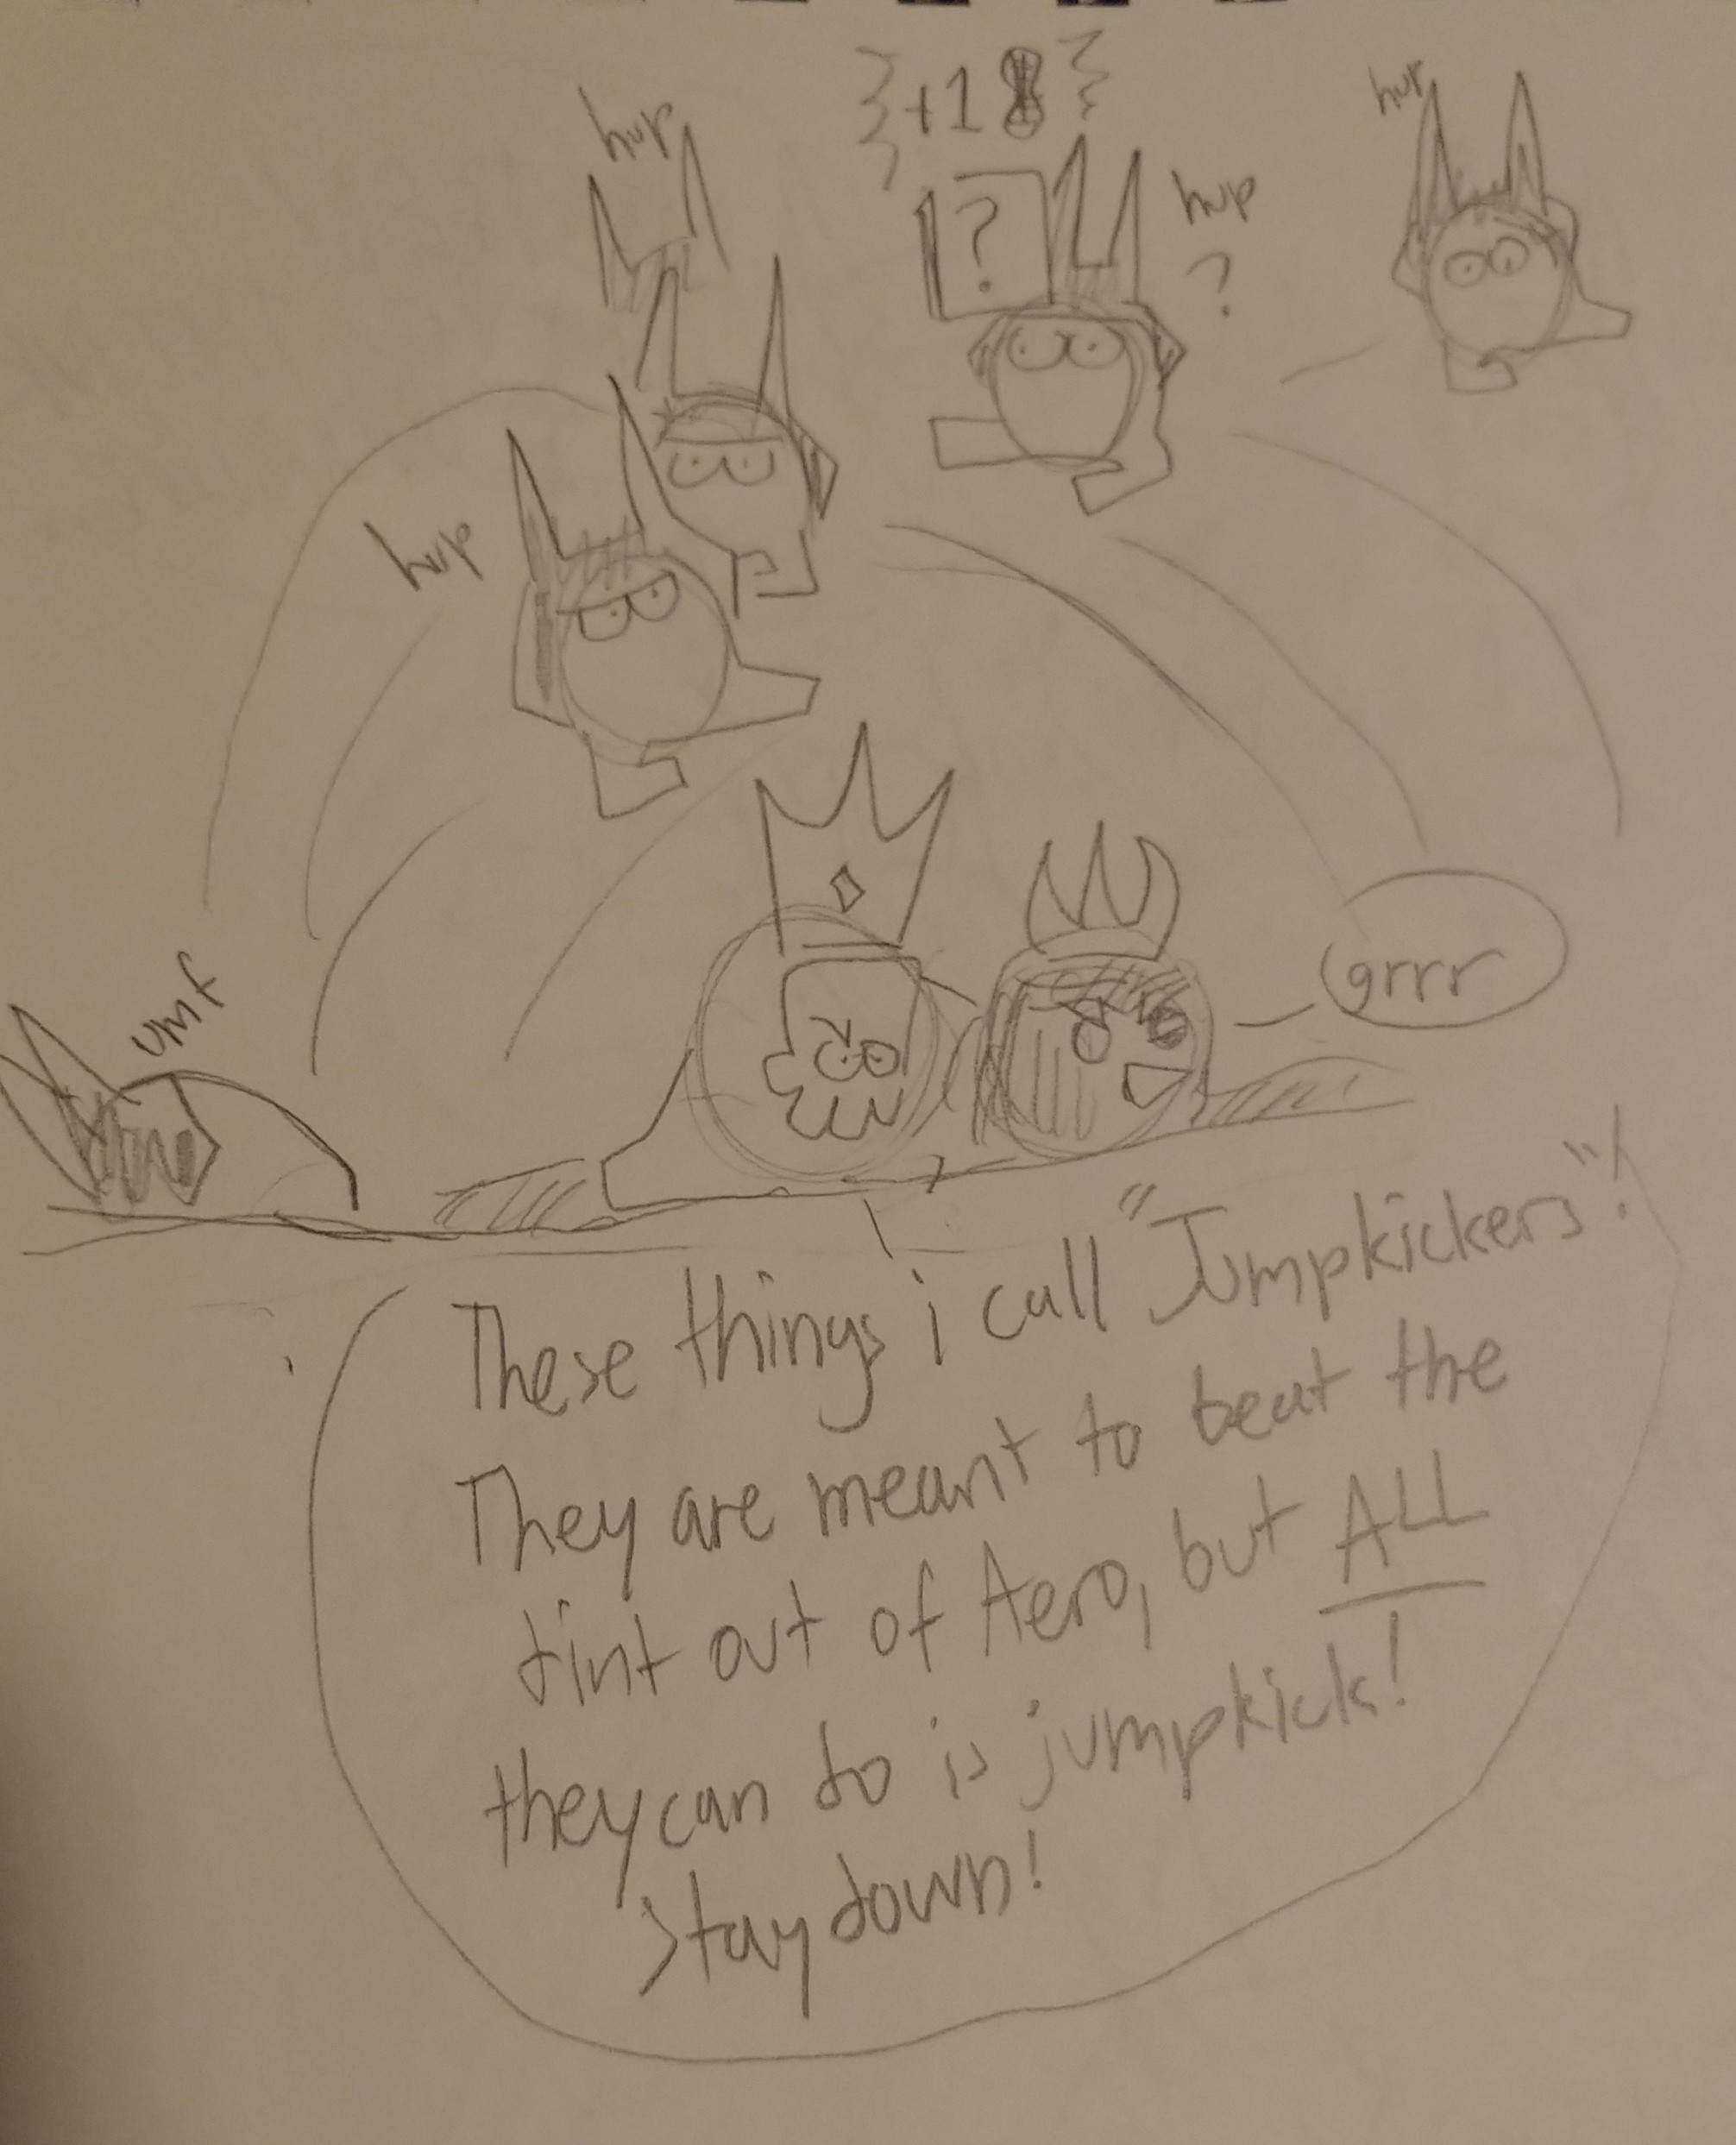 hup
+1
hup
?
hup
?
hup
umf
grrr
These things i call "Jumpkickers"!
They are meant to beat the
tint out of Aero, but ALL
they can do is jumpkick!
Stay down!